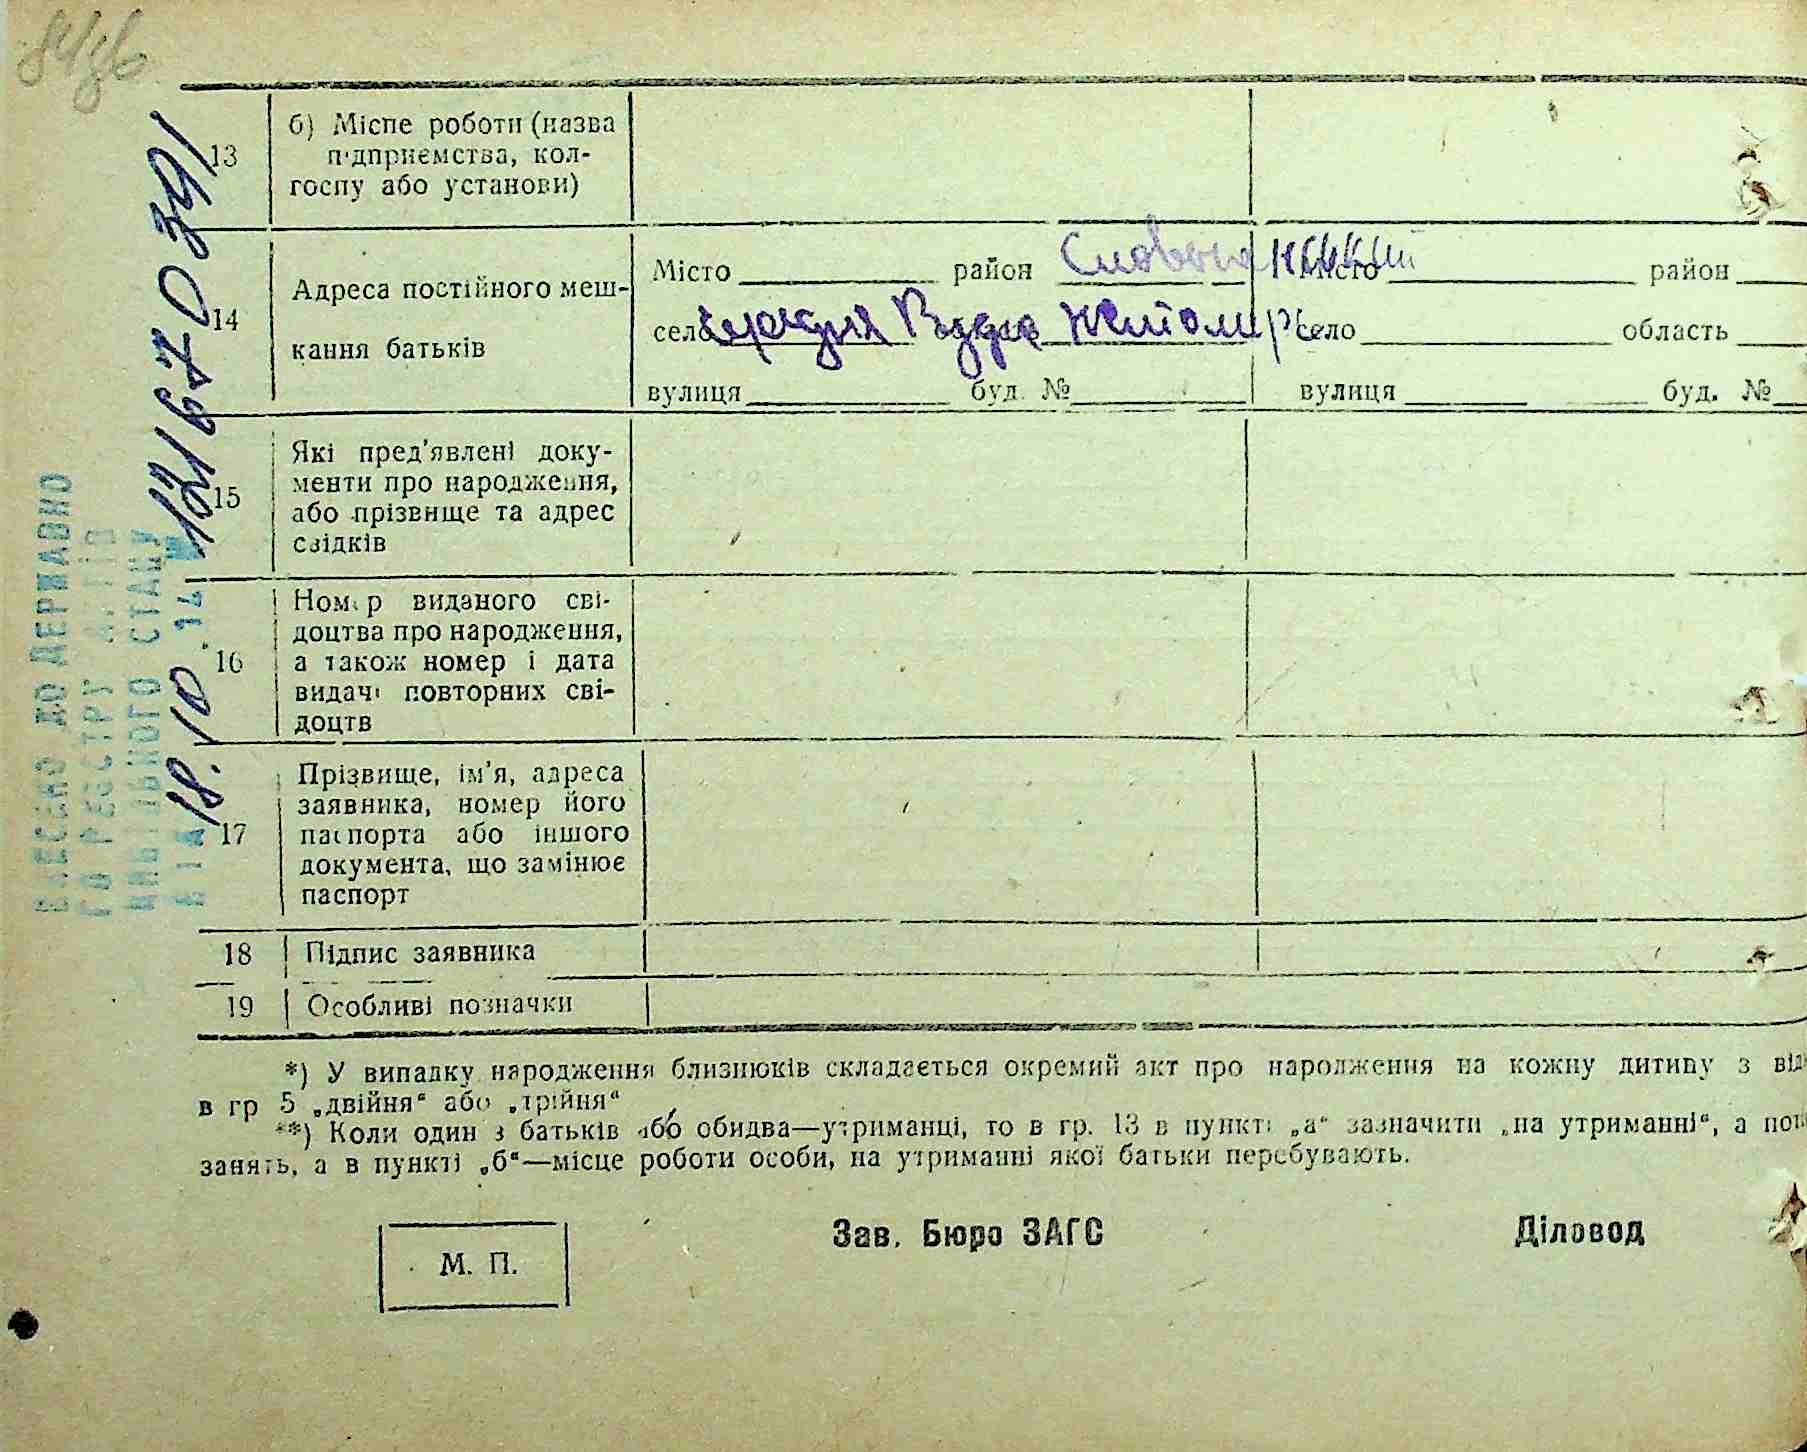 13
б) Місце роботи (назва
підприємства, кол-
госпу або установи)
14
Адреса постійного меш-
кання батьків
Місто район Словеча нський Місто район
село Рудня Житомирс село область
вулиця буд. № вулиця буд. №
15
Які пред'явлені доку-
менти про народження,
або прізвище та адрес
свідків
16
Номер виданого сві-
доцтва про народження,
а також номер і дата
видачі повторних сві-
доцтв
17
Прізвище, ім'я, адреса
заявника, номер його
паспорта або іншого
документа, що замінює
паспорт
18 Підпис заявника
19 Особливі позначки
*) У випадку народження близнюків складається окремий акт про народження на кожну дитину з від
в гр 5 „двійня“ або „трійня“
**) Коли один з батьків або обидва—утриманці, то в гр. 13 в пункті „а“ зазначити „на утриманні“, а
занять, а в пункті „б“—місце роботи особи, на утриманні якої батьки перебувають.
Зав. Бюро ЗАГС Діловод
М. П.
ВНЕСЕНО ДО ДЕРЖАВНО
ГО РЕЄСТРУ АКТІВ
ЦИВІЛЬНОГО СТАНУ
ВІД 18.10.14 №